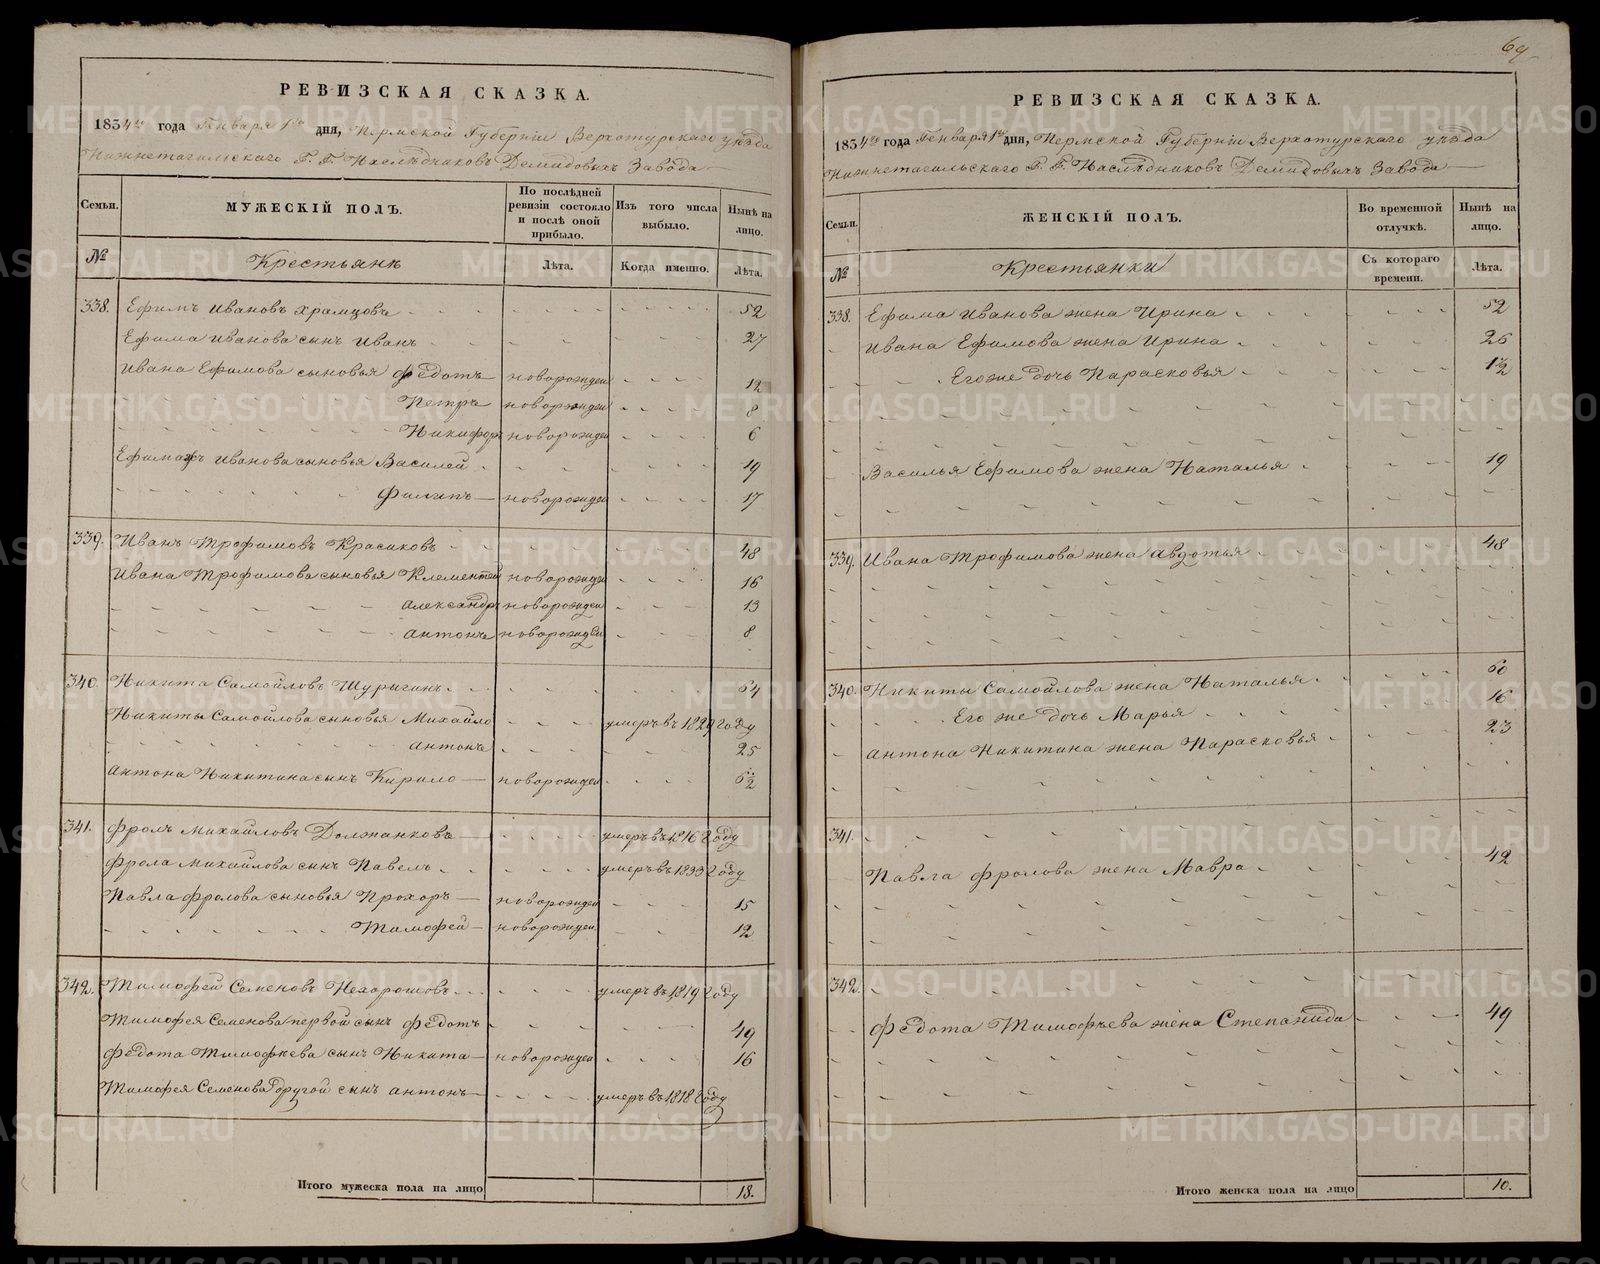 РЕВИЗСКАЯ СКАЗКА.
1834го года Генваря 1го дня, Пермской Губернiи Верхотурскаго уѣзда
Нижнетагильскаго Г. Г. Наслѣдниковъ Демидовыхъ Завода
Семьи. МУЖЕСКIЙ ПОЛЪ. По послѣдней ревизiи состояло и послѣ оной прибыло. Изъ того числа выбыло. Нынѣ на лицо.
№ Крестьянѣ Лѣта. Когда именно. Лѣта.
338. Ефимъ Ивановъ Храмцовъ 52
Ефима Иванова сынъ Иванъ 27
Ивана Ефимова сыновья Федотъ новорожден 12
Петръ новорожден 8
Никифоръ новорожден 6
Ефима Иванова сыновья Василей 19
Филипъ новорожден 17
339. Иванъ Трофимовъ Красиковъ 48
Ивана Трофимова сыновья Клементей новорожден 16
Александръ новорожден 13
Антонъ новорожден 8
340. Никита Самойловъ Шурыгинъ 64
Никиты Самойлова сыновья Михайло умеръ въ 1829 году
Антонъ 25
Антона Никитина сынъ Кирило новорожден 6 1/2
341. Фролъ Михайловъ Должанковъ умеръ въ 1816 году
Фрола Михайлова сынъ Павелъ умеръ въ 1833 году
Павла Фролова сыновья Прохоръ новорожден 15
Тимофей новорожден 12
342. Тимофей Семеновъ Нехорошовъ умеръ въ 1819 году
Тимофея Семенова первой сынъ Федотъ 49
Федота Тимофѣева сынъ Никита новорожден 16
Тимофея Семенова другой сынъ Антонъ умеръ въ 1818 году
Итого мужеска пола на лицо 18.
69
РЕВИЗСКАЯ СКАЗКА.
1834го года Генваря 1го дня, Пермской Губернiи Верхотурскаго уѣзда
Нижнетагильскаго Г. Г. Наслѣдниковъ Демидовыхъ Завода
Семьи. ЖЕНСКIЙ ПОЛЪ. Во временной отлучкѣ. Нынѣ на лицо.
№ Крестьянки Съ котораго времени. Лѣта.
338. Ефима Иванова жена Ирина 52
Ивана Ефимова жена Ирина 26
Его же дочь Парасковья 1/2
Василья Ефимова жена Наталья 19
339. Ивана Трофимова жена Авдотья 48
340. Никиты Самойлова жена Наталья 60
Его же дочь Марья 16
Антона Никитина жена Парасковья 23
341.
Павла Фролова жена Мавра 42
342.
Федота Тимофѣева жена Степанида 49
Итого женска пола на лицо 10.
METRIKI.GASO-URAL.RU